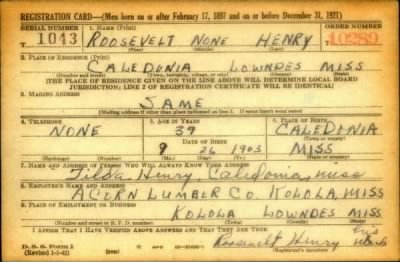 REGISTRATION CARD—(Men born on or after February 17, 1897 and on or before December 31, 1921)
SERIAL NUMBER 1. NAME (Print) ORDER NUMBER
1043 ROOSEVELT NONE HENRY 10289
(First) (Middle) (Last)
2. PLACE OF RESIDENCE (Print)
CALEDONIA LOWNDES MISS
(Number and street) (Town, township, village, or city) (County) (State)
[THE PLACE OF RESIDENCE GIVEN ON THE LINE ABOVE WILL DETERMINE LOCAL BOARD
JURISDICTION; LINE 2 OF REGISTRATION CERTIFICATE WILL BE IDENTICAL]
3. MAILING ADDRESS
SAME
[Mailing address if other than place indicated on line 2. If same insert word same]
4. TELEPHONE 5. AGE IN YEARS 6. PLACE OF BIRTH
NONE 39 CALEDONIA
DATE OF BIRTH (Town or county)
9 26 1903 MISS
(Exchange) (Number) (Mo.) (Day) (Yr.) (State or country)
7. NAME AND ADDRESS OF PERSON WHO WILL ALWAYS KNOW YOUR ADDRESS
Tilda Henry, Caledonia, miss
8. EMPLOYER'S NAME AND ADDRESS
ACORN LUMBER CO. KOLOLA, MISS
9. PLACE OF EMPLOYMENT OR BUSINESS
KOLOLA LOWNDES MISS
(Number and street or R. F. D. number) (Town) (County) (State)
I AFFIRM THAT I HAVE VERIFIED ABOVE ANSWERS AND THAT THEY ARE TRUE.
D. S. S. Form 1
(Revised 1-1-42) (over)
Roosevelt Henry
(Registrant's signature)